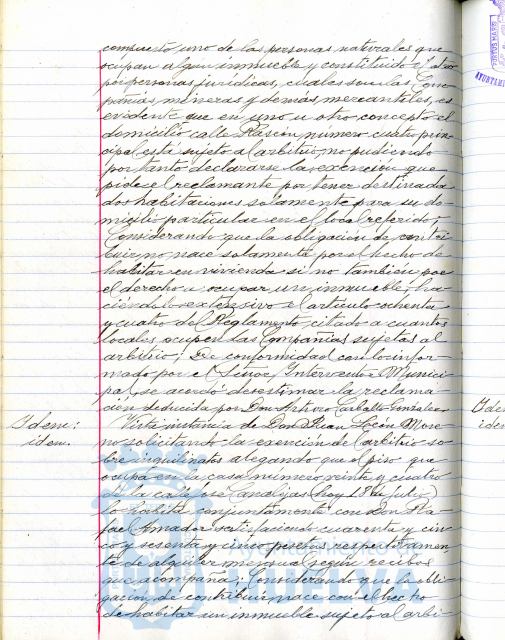 compuesto, uno de las personas naturales que
ocupan algún inmueble y constituido el otro
por personas jurídicas, cuales son las Com-
pañías mineras y demás mercantiles, es
evidente que en uno u otro concepto el
domicilio calle Rascón, número cuatro prin-
cipal está sujeto al arbitrio, no pudiendo
por tanto declararse la exención que
pide el reclamante por tener destinada
dos habitaciones solamente para su do-
micilio particular en el local referido;
Considerando que la obligación de contri-
buir no nace solamente por el hecho de
habitar en vivienda si no también por
el derecho a ocupar un inmueble, ha-
ciéndolo extensivo el artículo ochenta
y cuatro del Reglamento, citado a cuantos
locales ocupen las Compañías sujetas al
arbitrio; De conformidad con lo infor-
mado por el Señor Interventor Munici-
pal, se acordó desestimar la reclama-
ción deducida por Don Arturo Carballo González.
Idem:
idem.
Vista instancia de Don Juan León More-
no solicitando la exención de arbitrio so-
bre inquilinatos alegando que el piso que
ocupa en la casa número veinte y cuatro
de la calle José Canalejas (hoy 18 de Julio)
lo habita conjuntamente con Don Ra-
fael Amador satisfaciendo cuarenta y cin-
co y sesenta y cinco pesetas respectivamen-
te de alquiler mensual según recibos
que acompaña; Considerando que la obli-
gación de contribuir nace con el hecho
de habitar un inmueble sujeto al arbi-